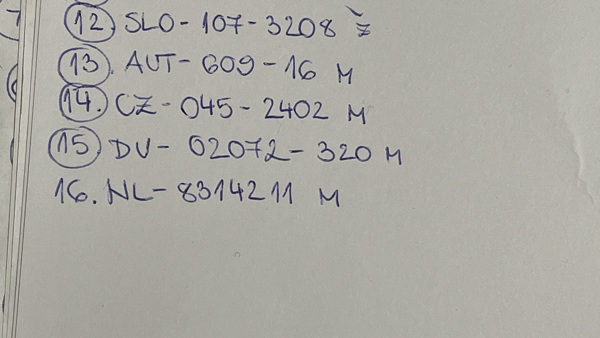 12. SLO - 107 - 3208 Ž
13. AUT - 609 - 16 M
14. CZ - 045 - 2402 M
15 DV - 02072 - 320 M
16. NL - 8314211 M